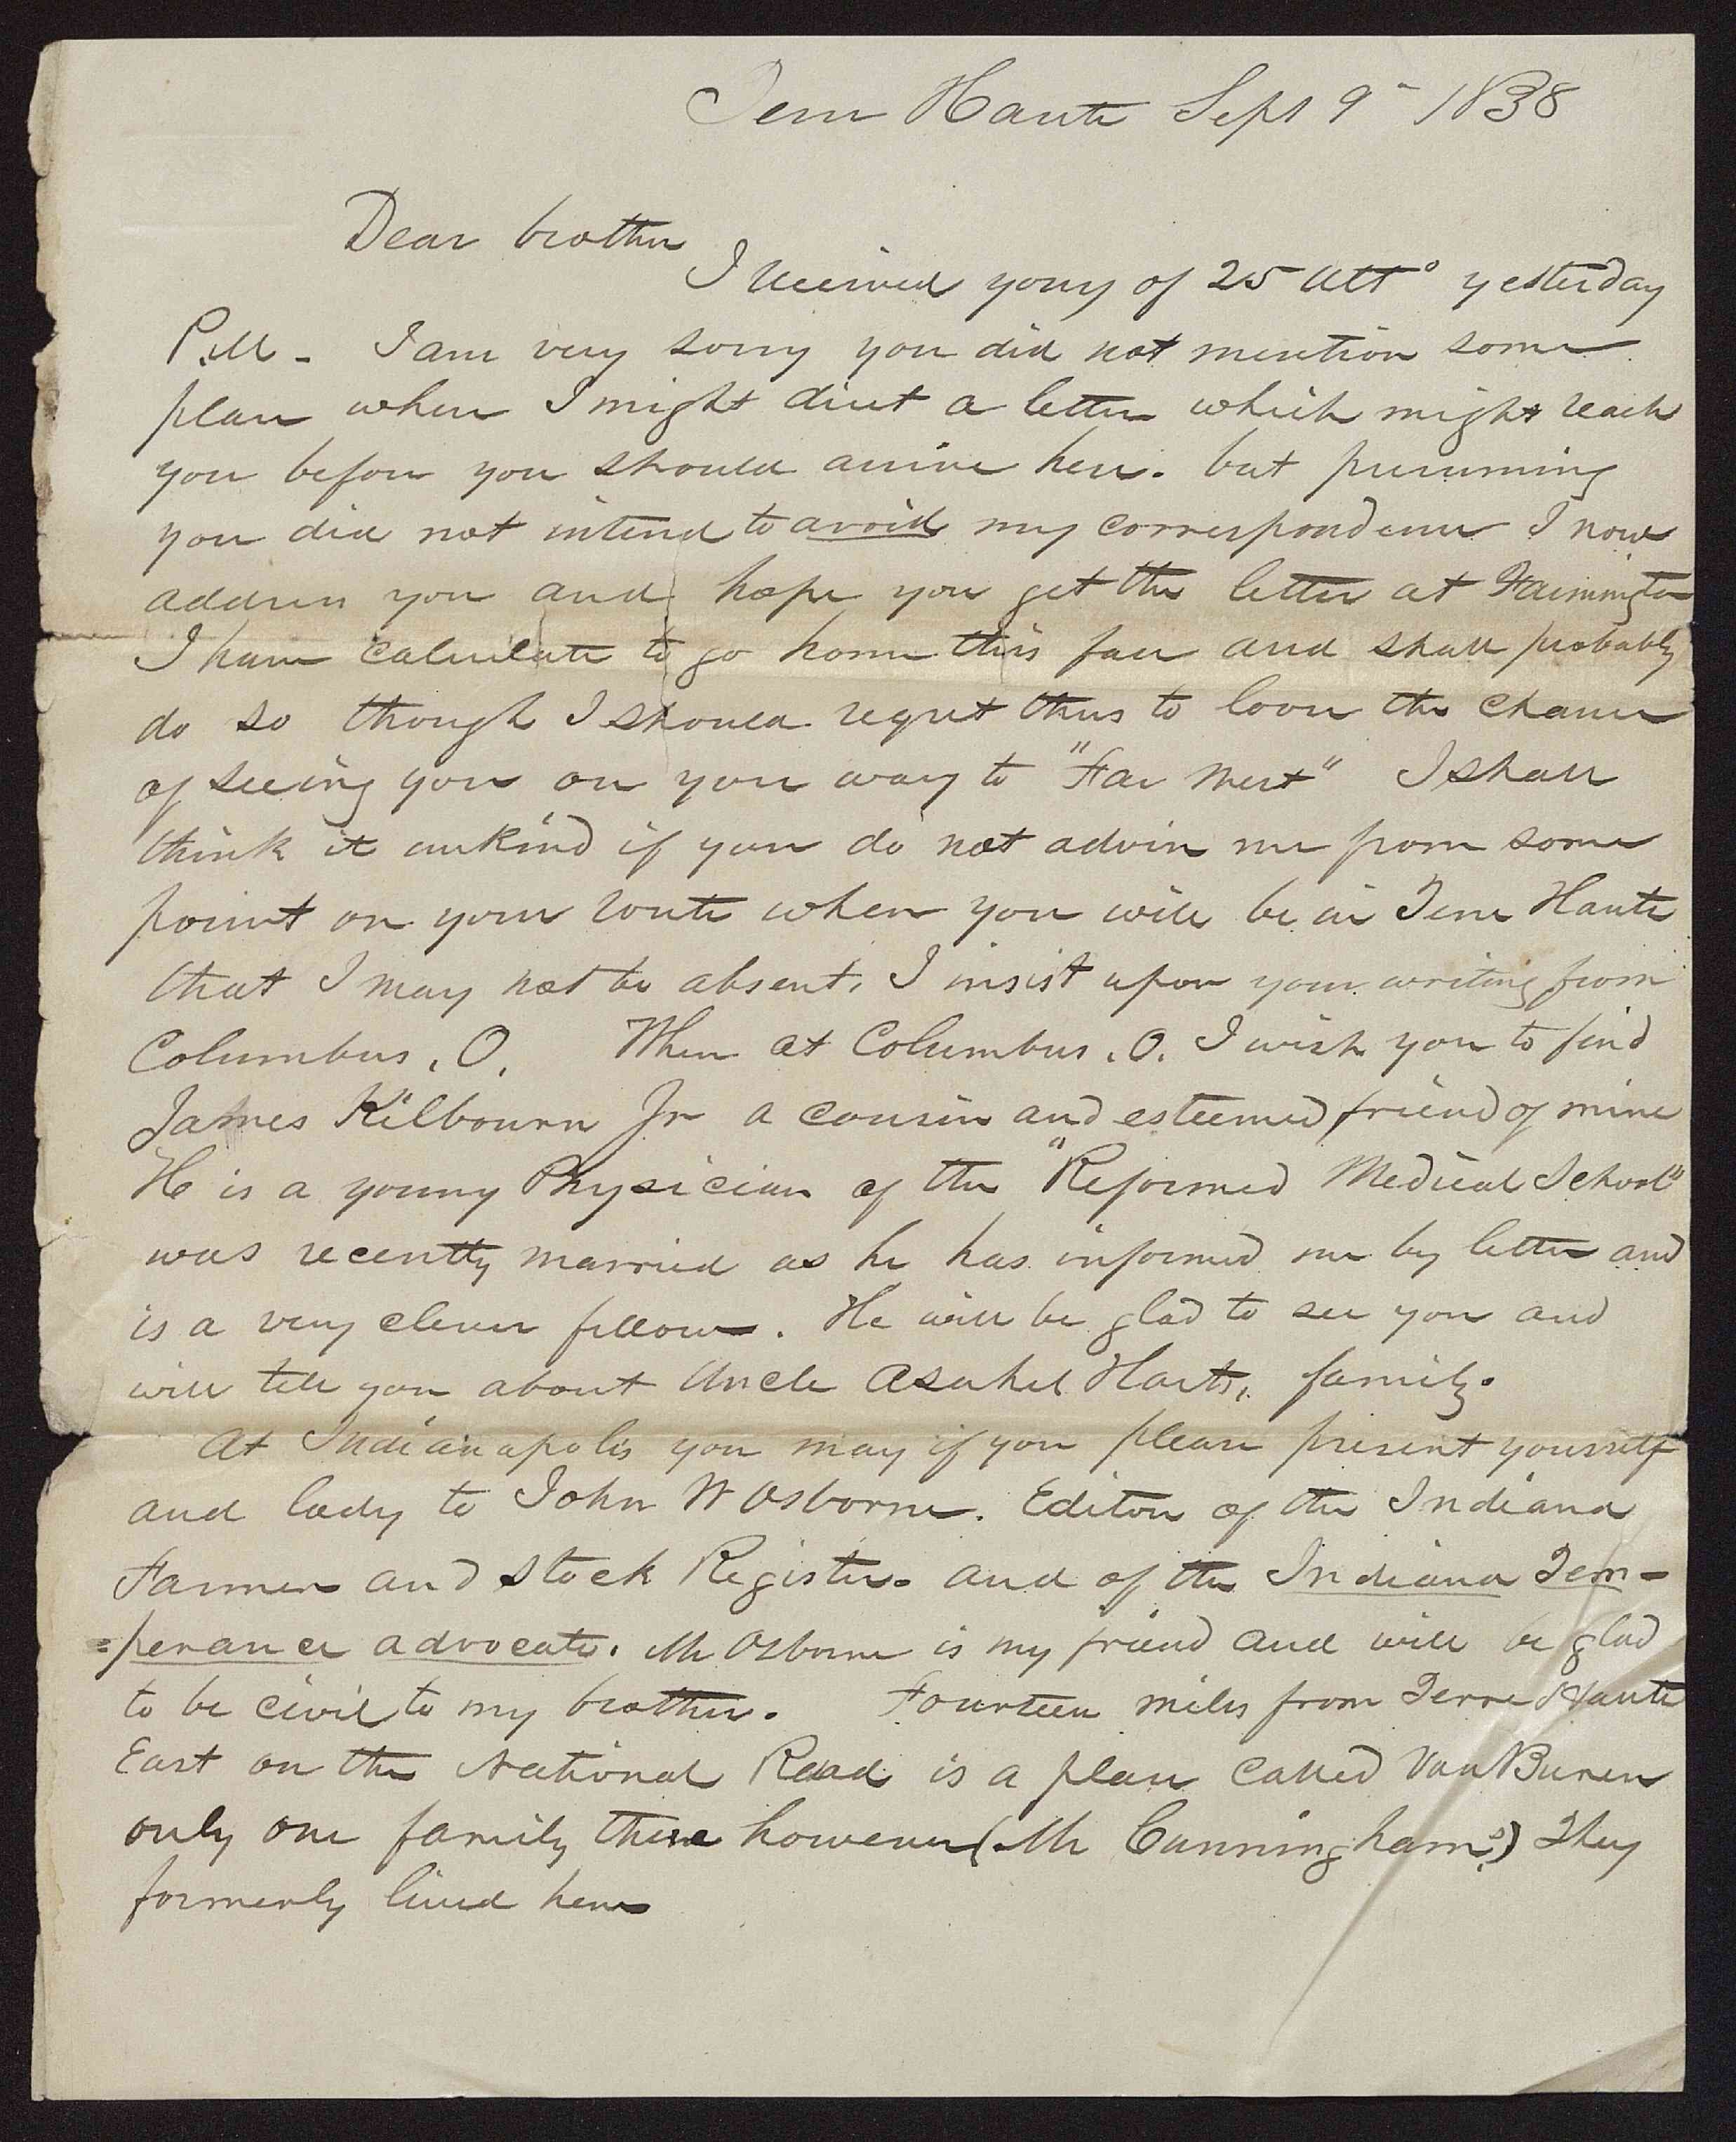 Terre Haute Sept 9th 1838
Dear brother
I received yours of 25 Ulto yesterday
P.M. - I am very sorry you did not mention some
place where I might direct a letter which might reach
you before you should arrive here. but presuming
you did not intend to avoid my correspondence I now
address you and hope you get the letter at Farmington
I have calculate to go home this fall and shall probably
do so though I should regret thus to loose the chance
of seeing you on your way to "Far West" I shall
think it unkind if you do not advise me from some
point on your route when you will be in Terre Haute
that I may not be absent, I insist upon your writing from
Columbus, O. When at Columbus, O. I wish you to find
James Kilbourn Jr a cousin and esteemed friend of mine
He is a young Physician of the "Reformed Medical School"
was recently married as he has informed me by letter and
is a very clever fellow. He will be glad to see you and
will tell you about Uncle Asahel Harts, family.
At Indianapolis you may if you please present yourself
and lady to John W Osborne. Editor of the Indiana
Farmer and Stock Register. and of the Indiana Tem-
=perance advocate. Mr Osborne is my friend and will be glad
to be civil to my brother. Fourteen miles from Terre Haute
East on the National Road is a place called Van Buren
only one family there however (Mr Cunninghams) They
formerly lived here